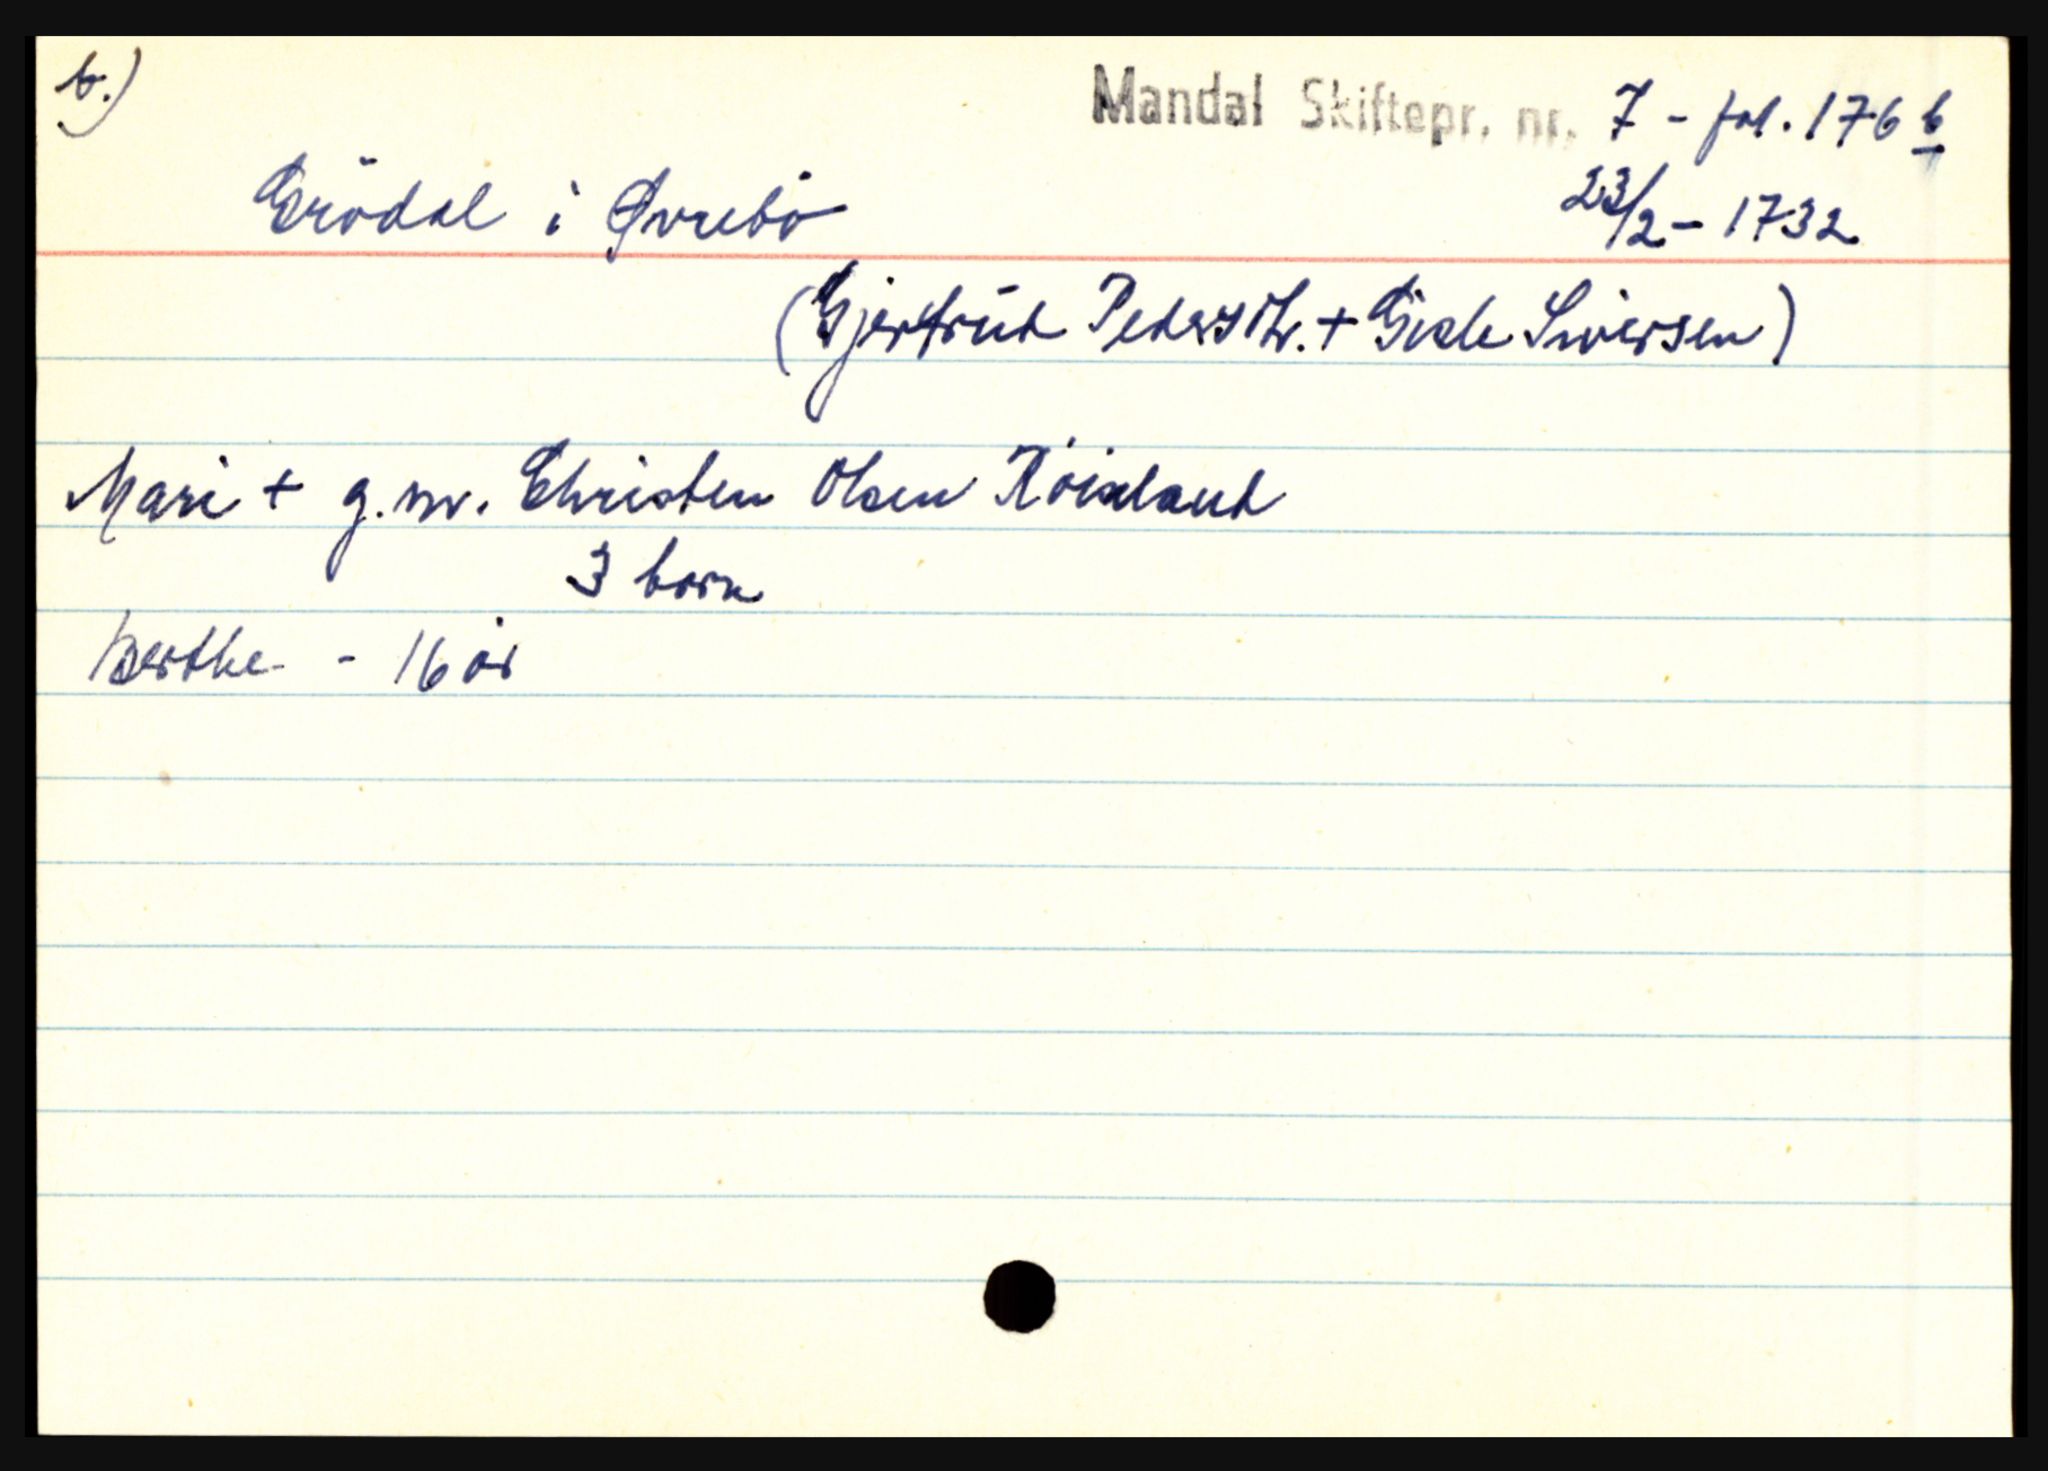 b.)
Mandal Skiftepr. nr. 7 - fol. 176 b
Grödal i Øvrebö
23/2 - 1732
(Gjertrud Pedersdtr. + Gisle Siversen)
Mari + g.m. Christen Olsen Röisland
3 born
Berthe - 16 år